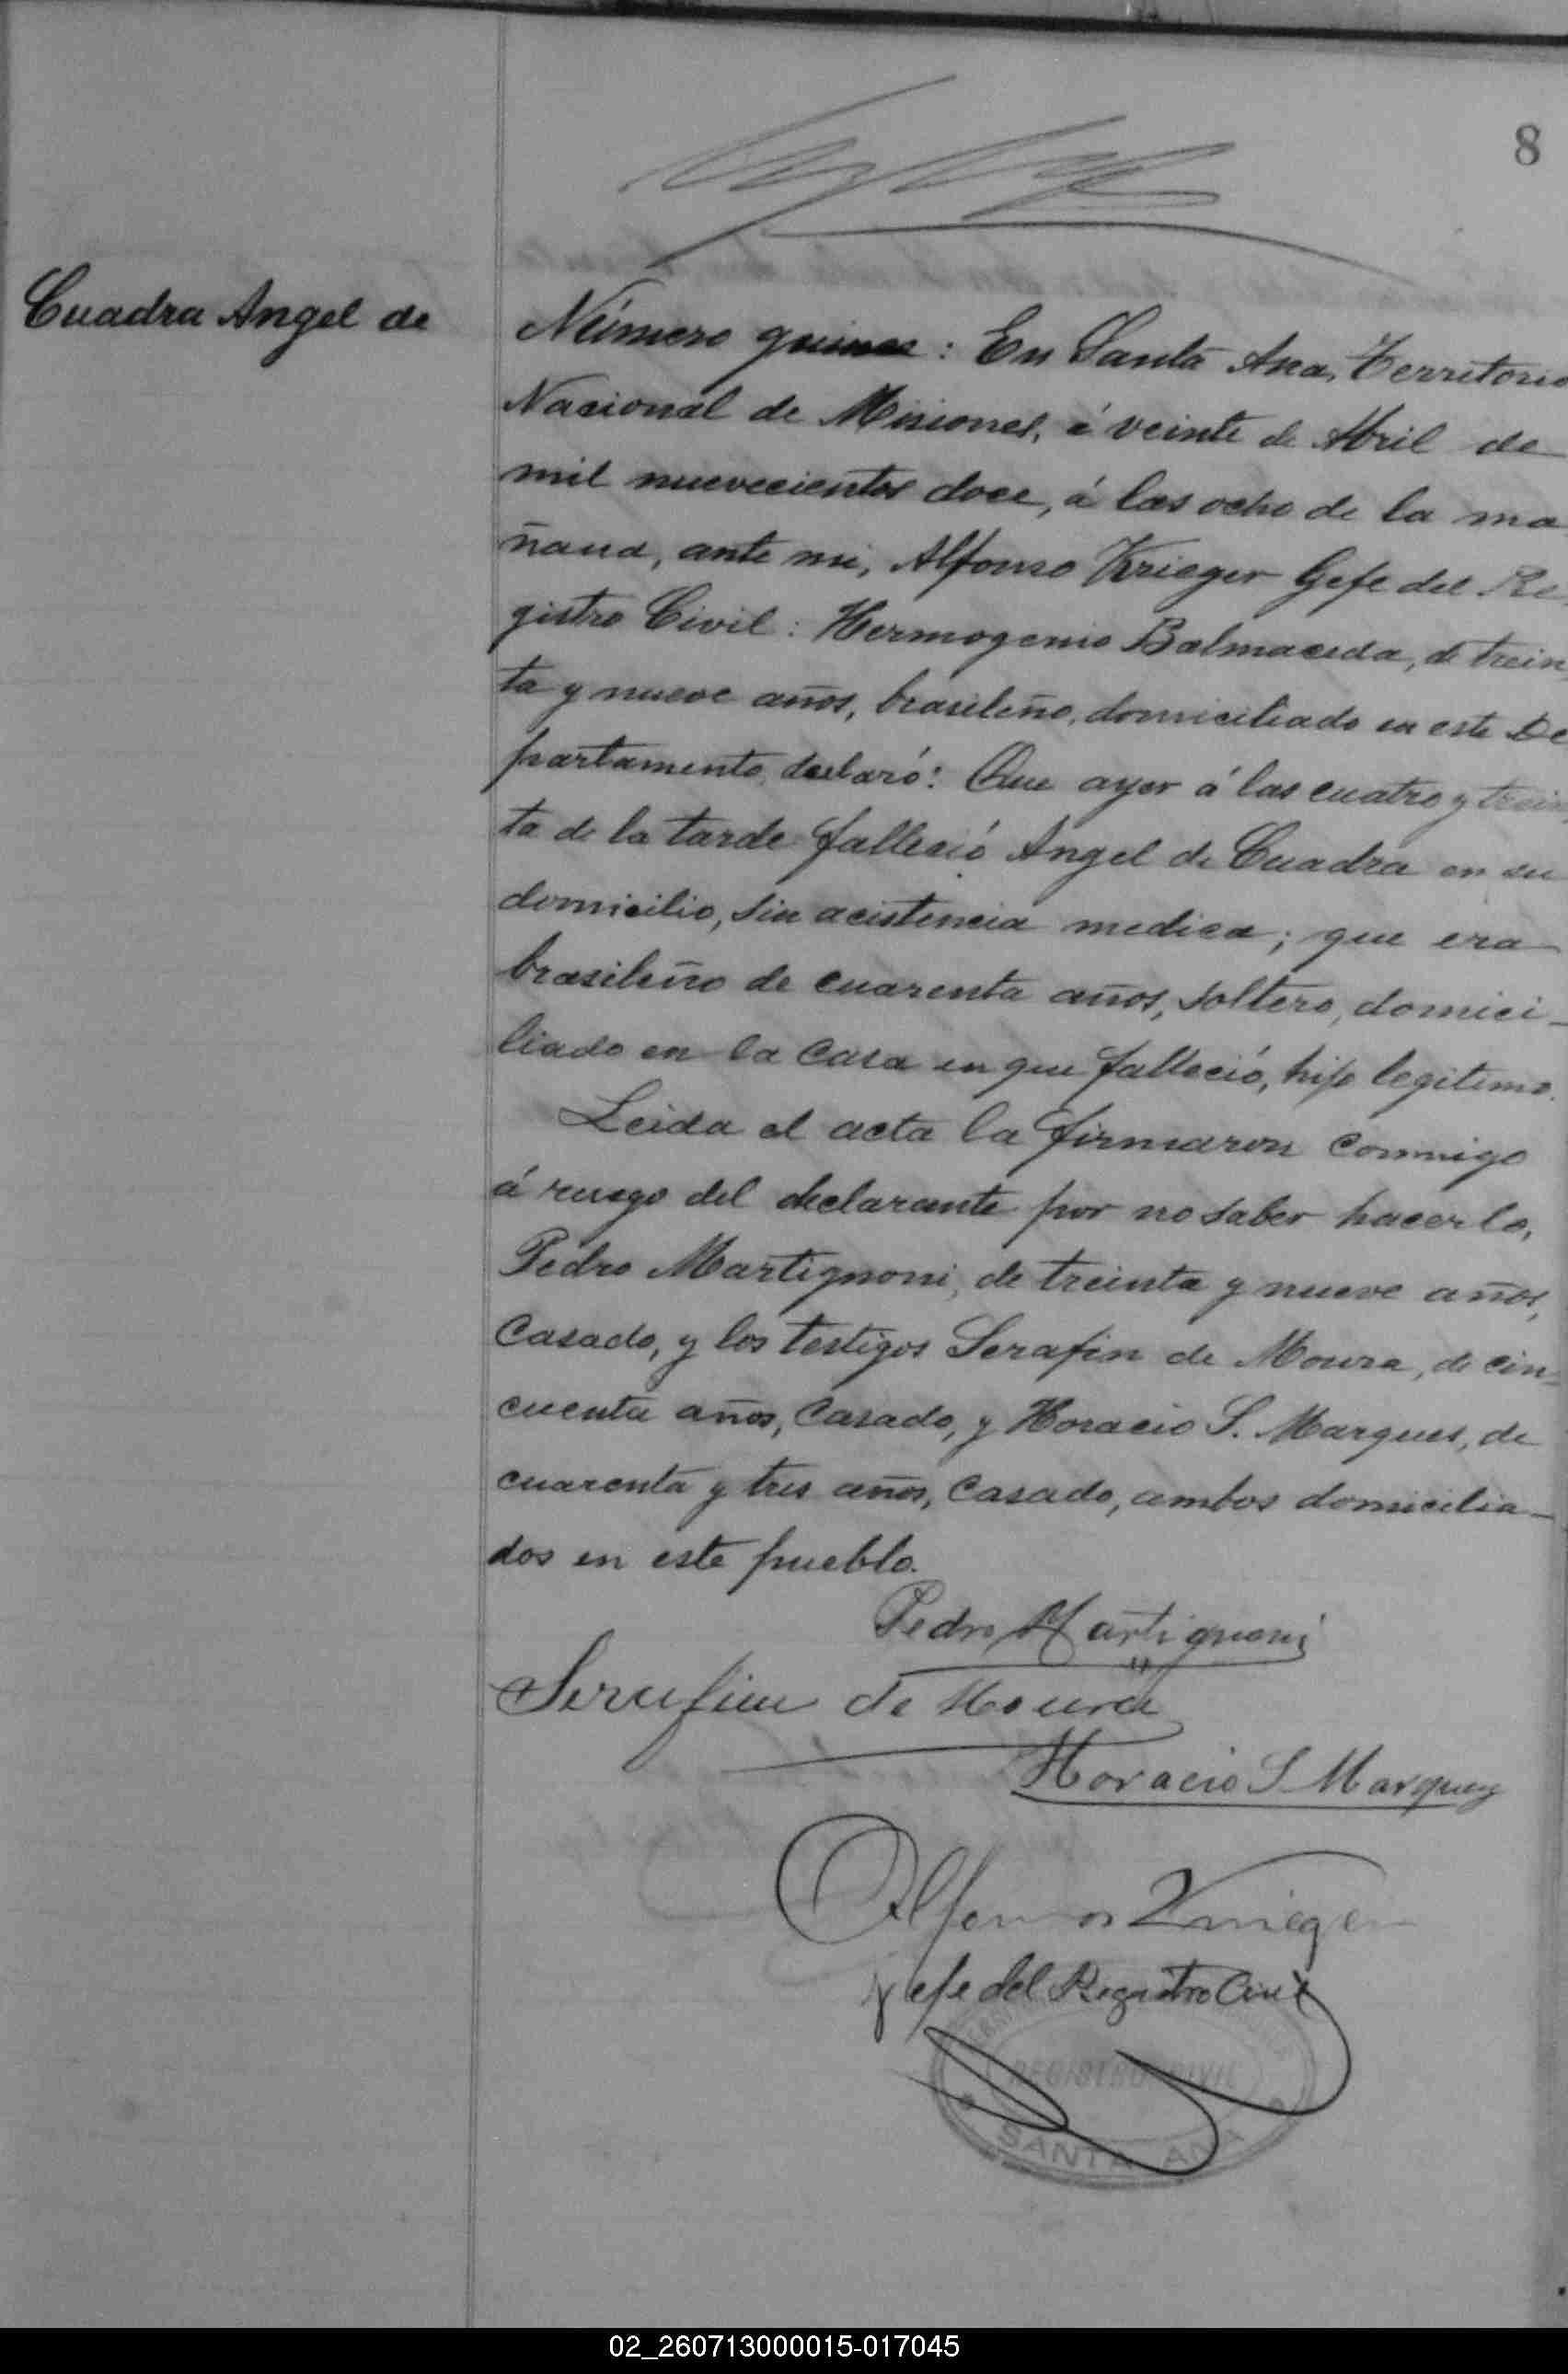 8
Cuadra Angel de
Número quince: En Santa Ana, Territorio
Nacional de Misiones, á veinte de Abril de
mil nuevecientos doce, á las ocho de la ma
ñana, ante mi, Alfonso Krieger Gefe del Re
gistro Civil: Hermogenio Balmaceda, de trein
ta y nueve años, brasileño, domiciliado en este De
partamento declaró: Que ayer á las cuatro y trein
ta de la tarde falleció Angel de Cuadra en su
domicilio, sin acistencia medica; que era
brasileño de cuarenta años, soltero, domici-
liado en la casa en que falleció, hijo legitimo.
Leida el acta la firmaron conmigo
á ruego del declarante por no saber hacerlo,
Pedro Martignoni, de treinta y nueve años,
casado, y los testigos Serafin de Moura, de cin-
cuenta años, casado, y Horacio S. Marques, de
cuarenta y tres años, casado, ambos domicilia-
dos en este pueblo.
Pedro Martignoni
Serafim de Moura
Horacio S Marques
Alfonso Krieger
Jefe del Registro Civil
REGISTRO CIVIL
SANTA ANA
02_260713000015-017045